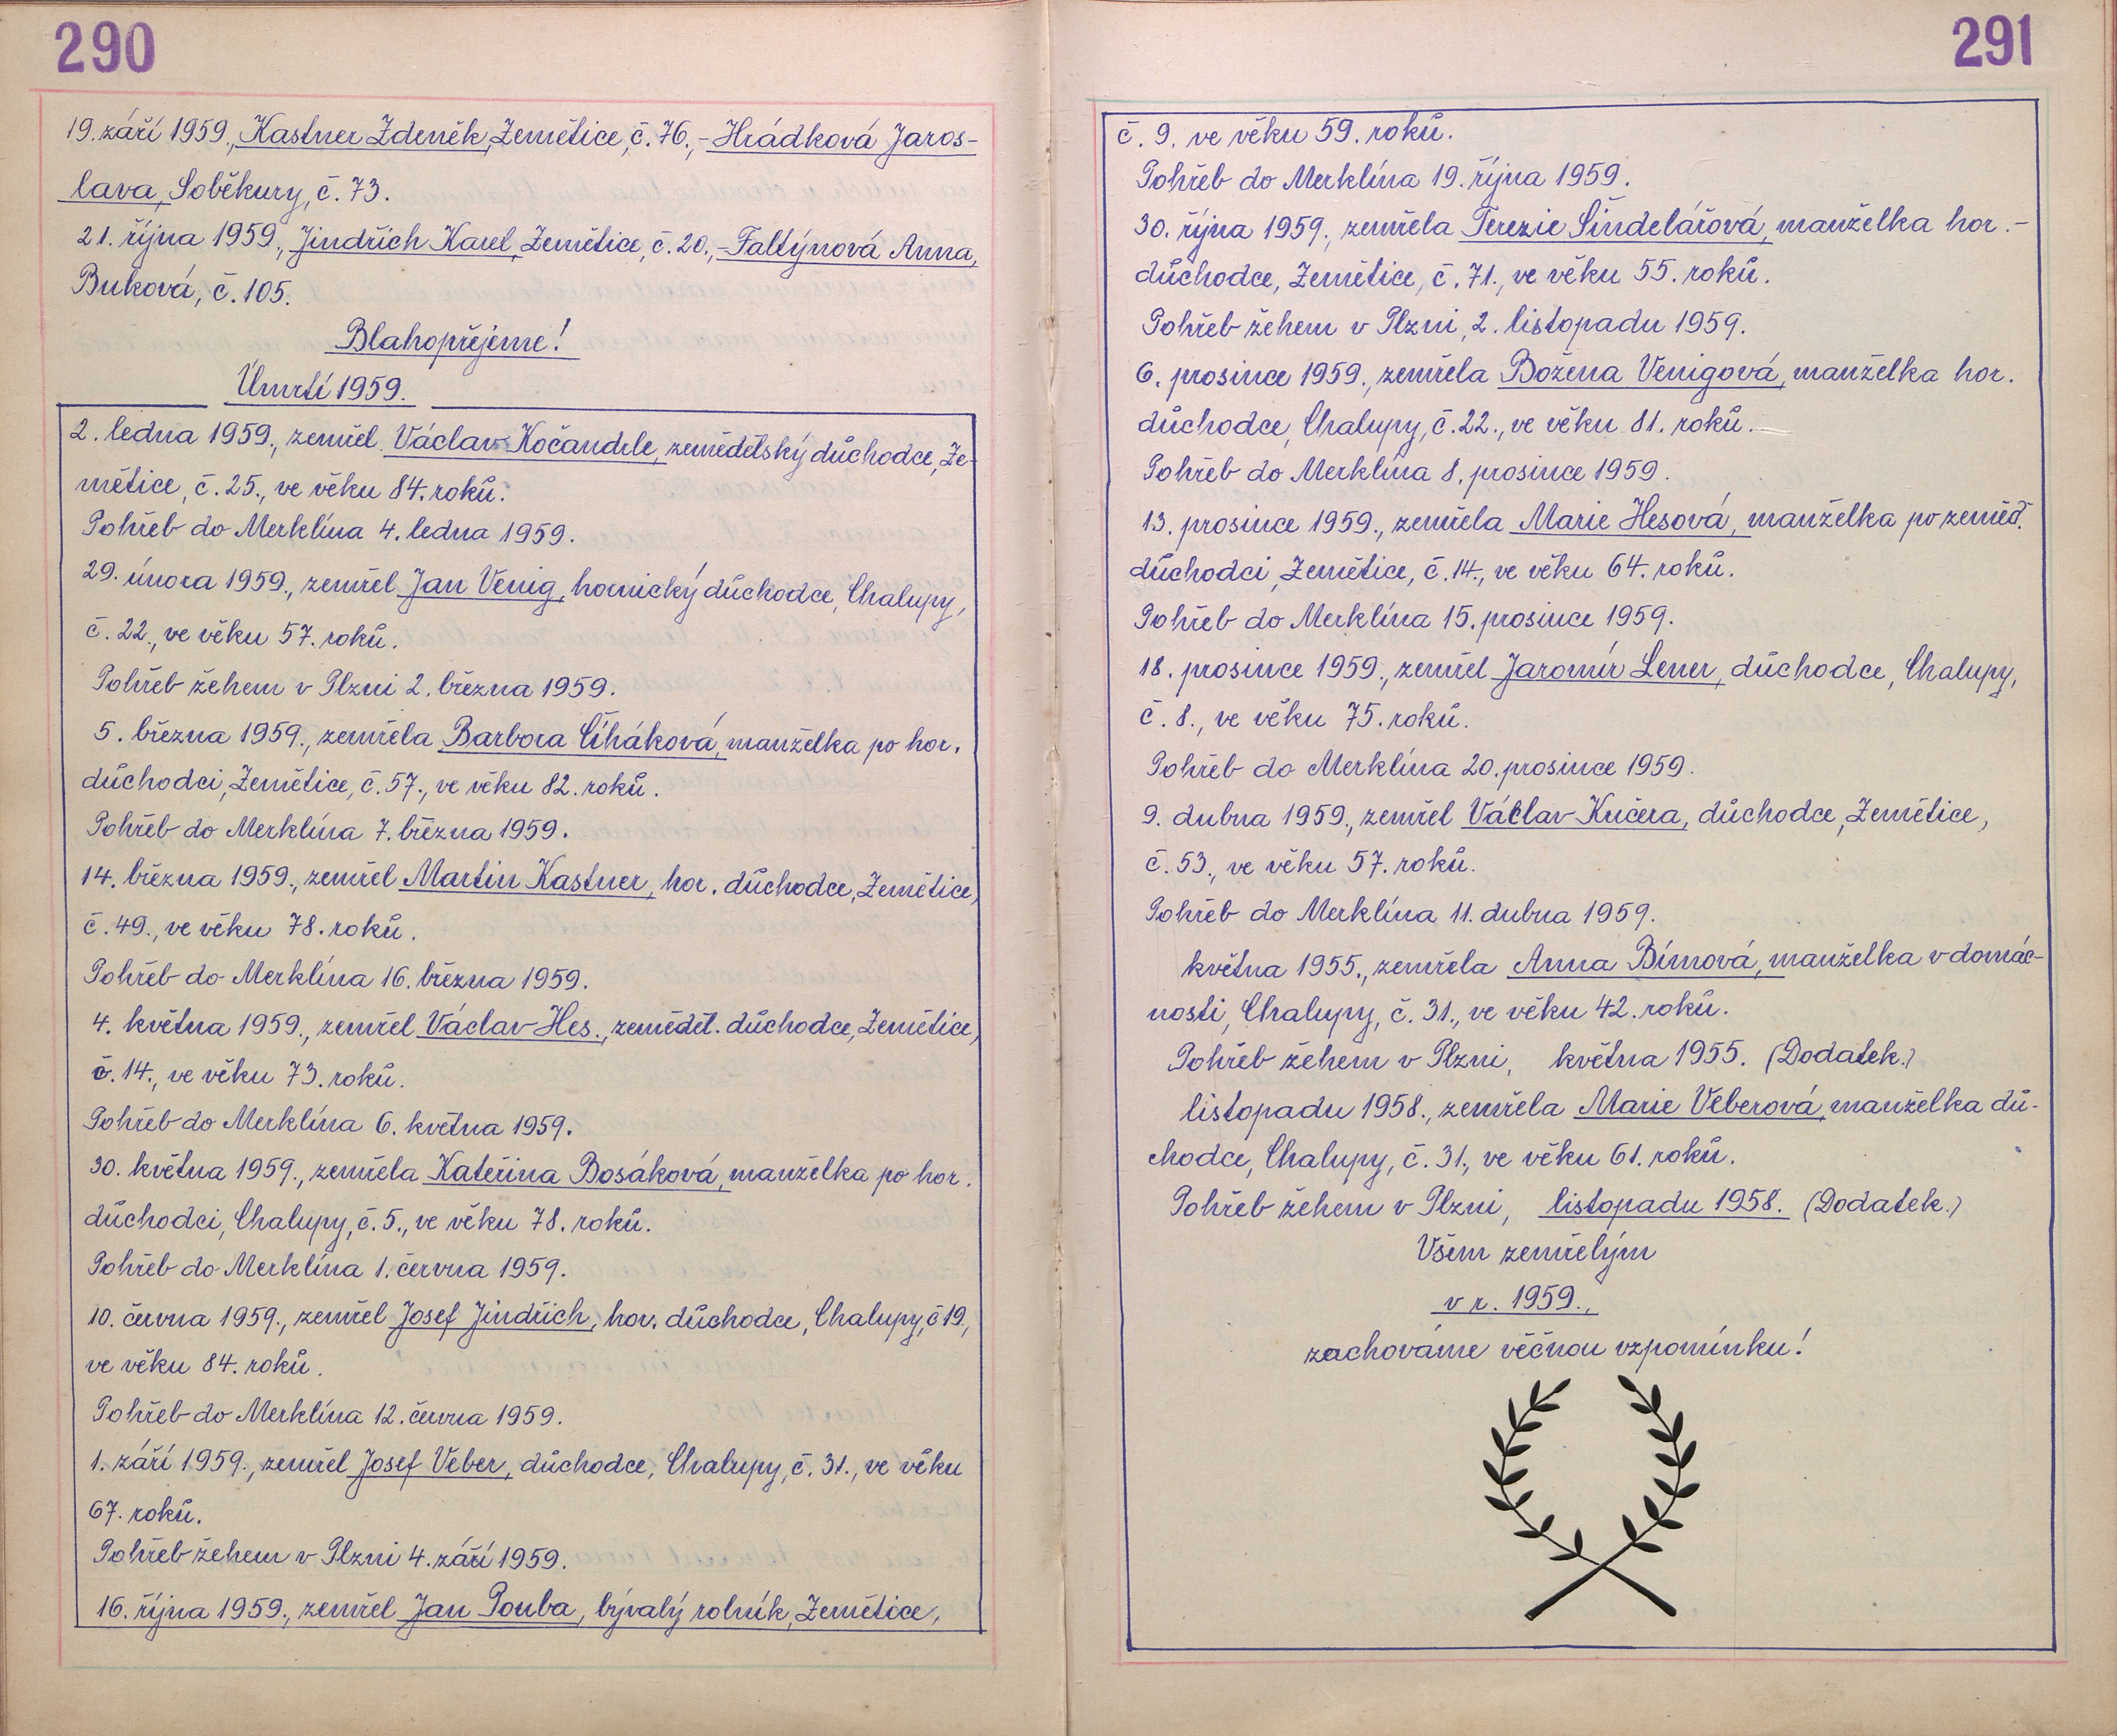 290
19. září 1959., Kastner Zdeněk, Zemětice, č. 76., - Hrádková Jaros-
lava, Soběkury, č. 73.
21. října 1959., Jindřich Karel, Zemětice, č. 20., - Faltýnová Anna,
Buková, č. 105.
Blahopřejeme!
Úmrtí 1959.
2. ledna 1959., zemřel Václav Kočandrle, zemědělský důchodce, Ze-
mětice, č. 25., ve věku 84. roků.
Pohřeb do Merklína 4. ledna 1959.
29. února 1959., zemřel Jan Venig, hornický důchodce, Chalupy,
č. 22., ve věku 57. roků.
Pohřeb žehem v Plzni 2. března 1959.
5. března 1959., zemřela Barbora Číháková, manželka po hor.
důchodci, Zemětice, č. 57., ve věku 82. roků.
Pohřeb do Merklína 7. března 1959.
14. března 1959., zemřel Martin Kastner, hor. důchodce, Zemětice,
č. 49., ve věku 78. roků.
Pohřeb do Merklína 16. března 1959.
4. května 1959., zemřel Václav Hes., zeměděl. důchodce, Zemětice,
č. 14., ve věku 73. roků.
Pohřeb do Merklína 6. května 1959.
30. května 1959., zemřela Kateřina Bosáková, manželka po hor.
důchodci, Chalupy, č. 5., ve věku 78. roků.
Pohřeb do Merklína 1. června 1959.
10. června 1959., zemřel Josef Jindřich, hor. důchodce, Chalupy, č 19.,
ve věku 84. roků.
Pohřeb do Merklína 12. června 1959.
1. září 1959., zemřel Josef Veber, důchodce, Chalupy, č. 31., ve věku
67. roků.
Pohřeb žehem v Plzni 4. září 1959.
16. října 1959., zemřel Jan Pouba, bývalý rolník, Zemětice,
291
č. 9. ve věku 59. roků.
Pohřeb do Merklína 19. října 1959.
30. října 1959., zemřela Terezie Šindelářová, manželka hor. -
důchodce, Zemětice, č. 71., ve věku 55. roků.
Pohřeb žehem v Plzni, 2. listopadu 1959.
6. prosince 1959., zemřela Božena Venigová, manželka hor.
důchodce, Chalupy, č. 22., ve věku 81. roků.
Pohřeb do Merklína 8. prosince 1959.
13. prosince 1959., zemřela Marie Hesová, manželka po zeměd.
důchodci, Zemětice, č. 14., ve věku 64. roků.
Pohřeb do Merklína 15. prosince 1959.
18. prosince 1959., zemřel Jaromír Lener, důchodce, Chalupy,
č. 8., ve věku 75. roků.
Pohřeb do Merklína 20. prosince 1959.
9. dubna 1959., zemřel Václav Kučera, důchodce, Zemětice,
č. 53., ve věku 57. roků.
Pohřeb do Merklína 11. dubna 1959.
května 1955., zemřela Anna Bímová, manželka v domác-
nosti, Chalupy, č. 31., ve věku 42. roků.
Pohřeb žehem v Plzni, května 1955. (Dodatek.)
listopadu 1958., zemřela Marie Veberová, manželka dů-
chodce, Chalupy, č. 31., ve věku 61. roků.
Pohřeb žehem v Plzni, listopadu 1958. (Dodatek.)
Všem zemřelým
v r. 1959.,
zachováme věčnou vzpomínku!